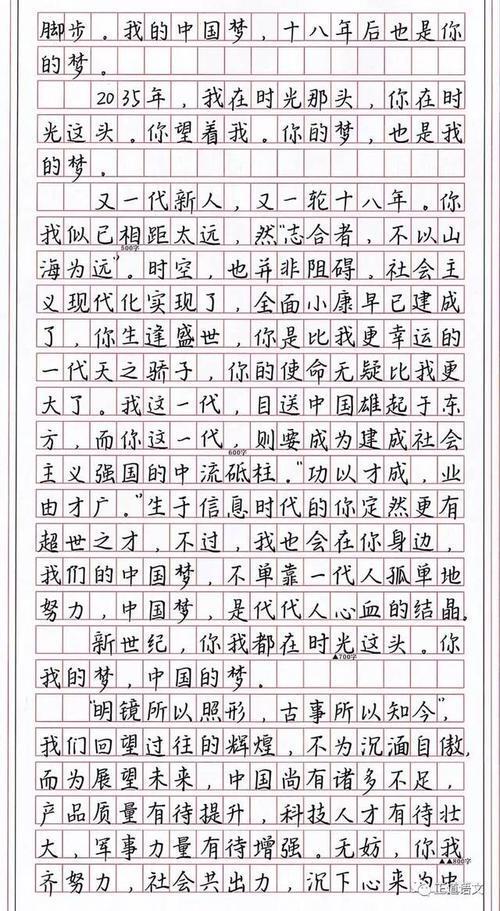 脚步。我的中国梦，十八年后也是你
的梦。
2035年，我在时光那头，你在时
光这头。你望着我。你的梦，也是我
的梦。
又一代新人，又一轮十八年。你
我似已相距太远，然“志合者，不以山
500字
海为远”。时空，也并非阻碍，社会主
义现代化实现了，全面小康早已建成
了，你生逢盛世，你是比我更幸运的
一代天之骄子，你的使命无疑比我更
大了。我这一代，目送中国雄起于东
方，而你这一代，则要成为建成社会
600字
主义强国的中流砥柱。“功以才成，业
由才广。”生于信息时代的你定然更有
超世之才，不过，我也会在你身边，
我们的中国梦，不单靠一代人孤单地
努力，中国梦，是代代人心血的结晶。
新世纪，你我都在时光这头。你
▲700字
我的梦，中国的梦。
“明镜所以照形，古事所以知今”，
我们回望过往的辉煌，不为沉湎自傲，
而为展望未来，中国尚有诸多不足，
产品质量有待提升，科技人才有待壮
大，军事力量有待增强。无妨，你我
▲▲800字
齐努力，社会共出力，沉下心来为中
正道语文